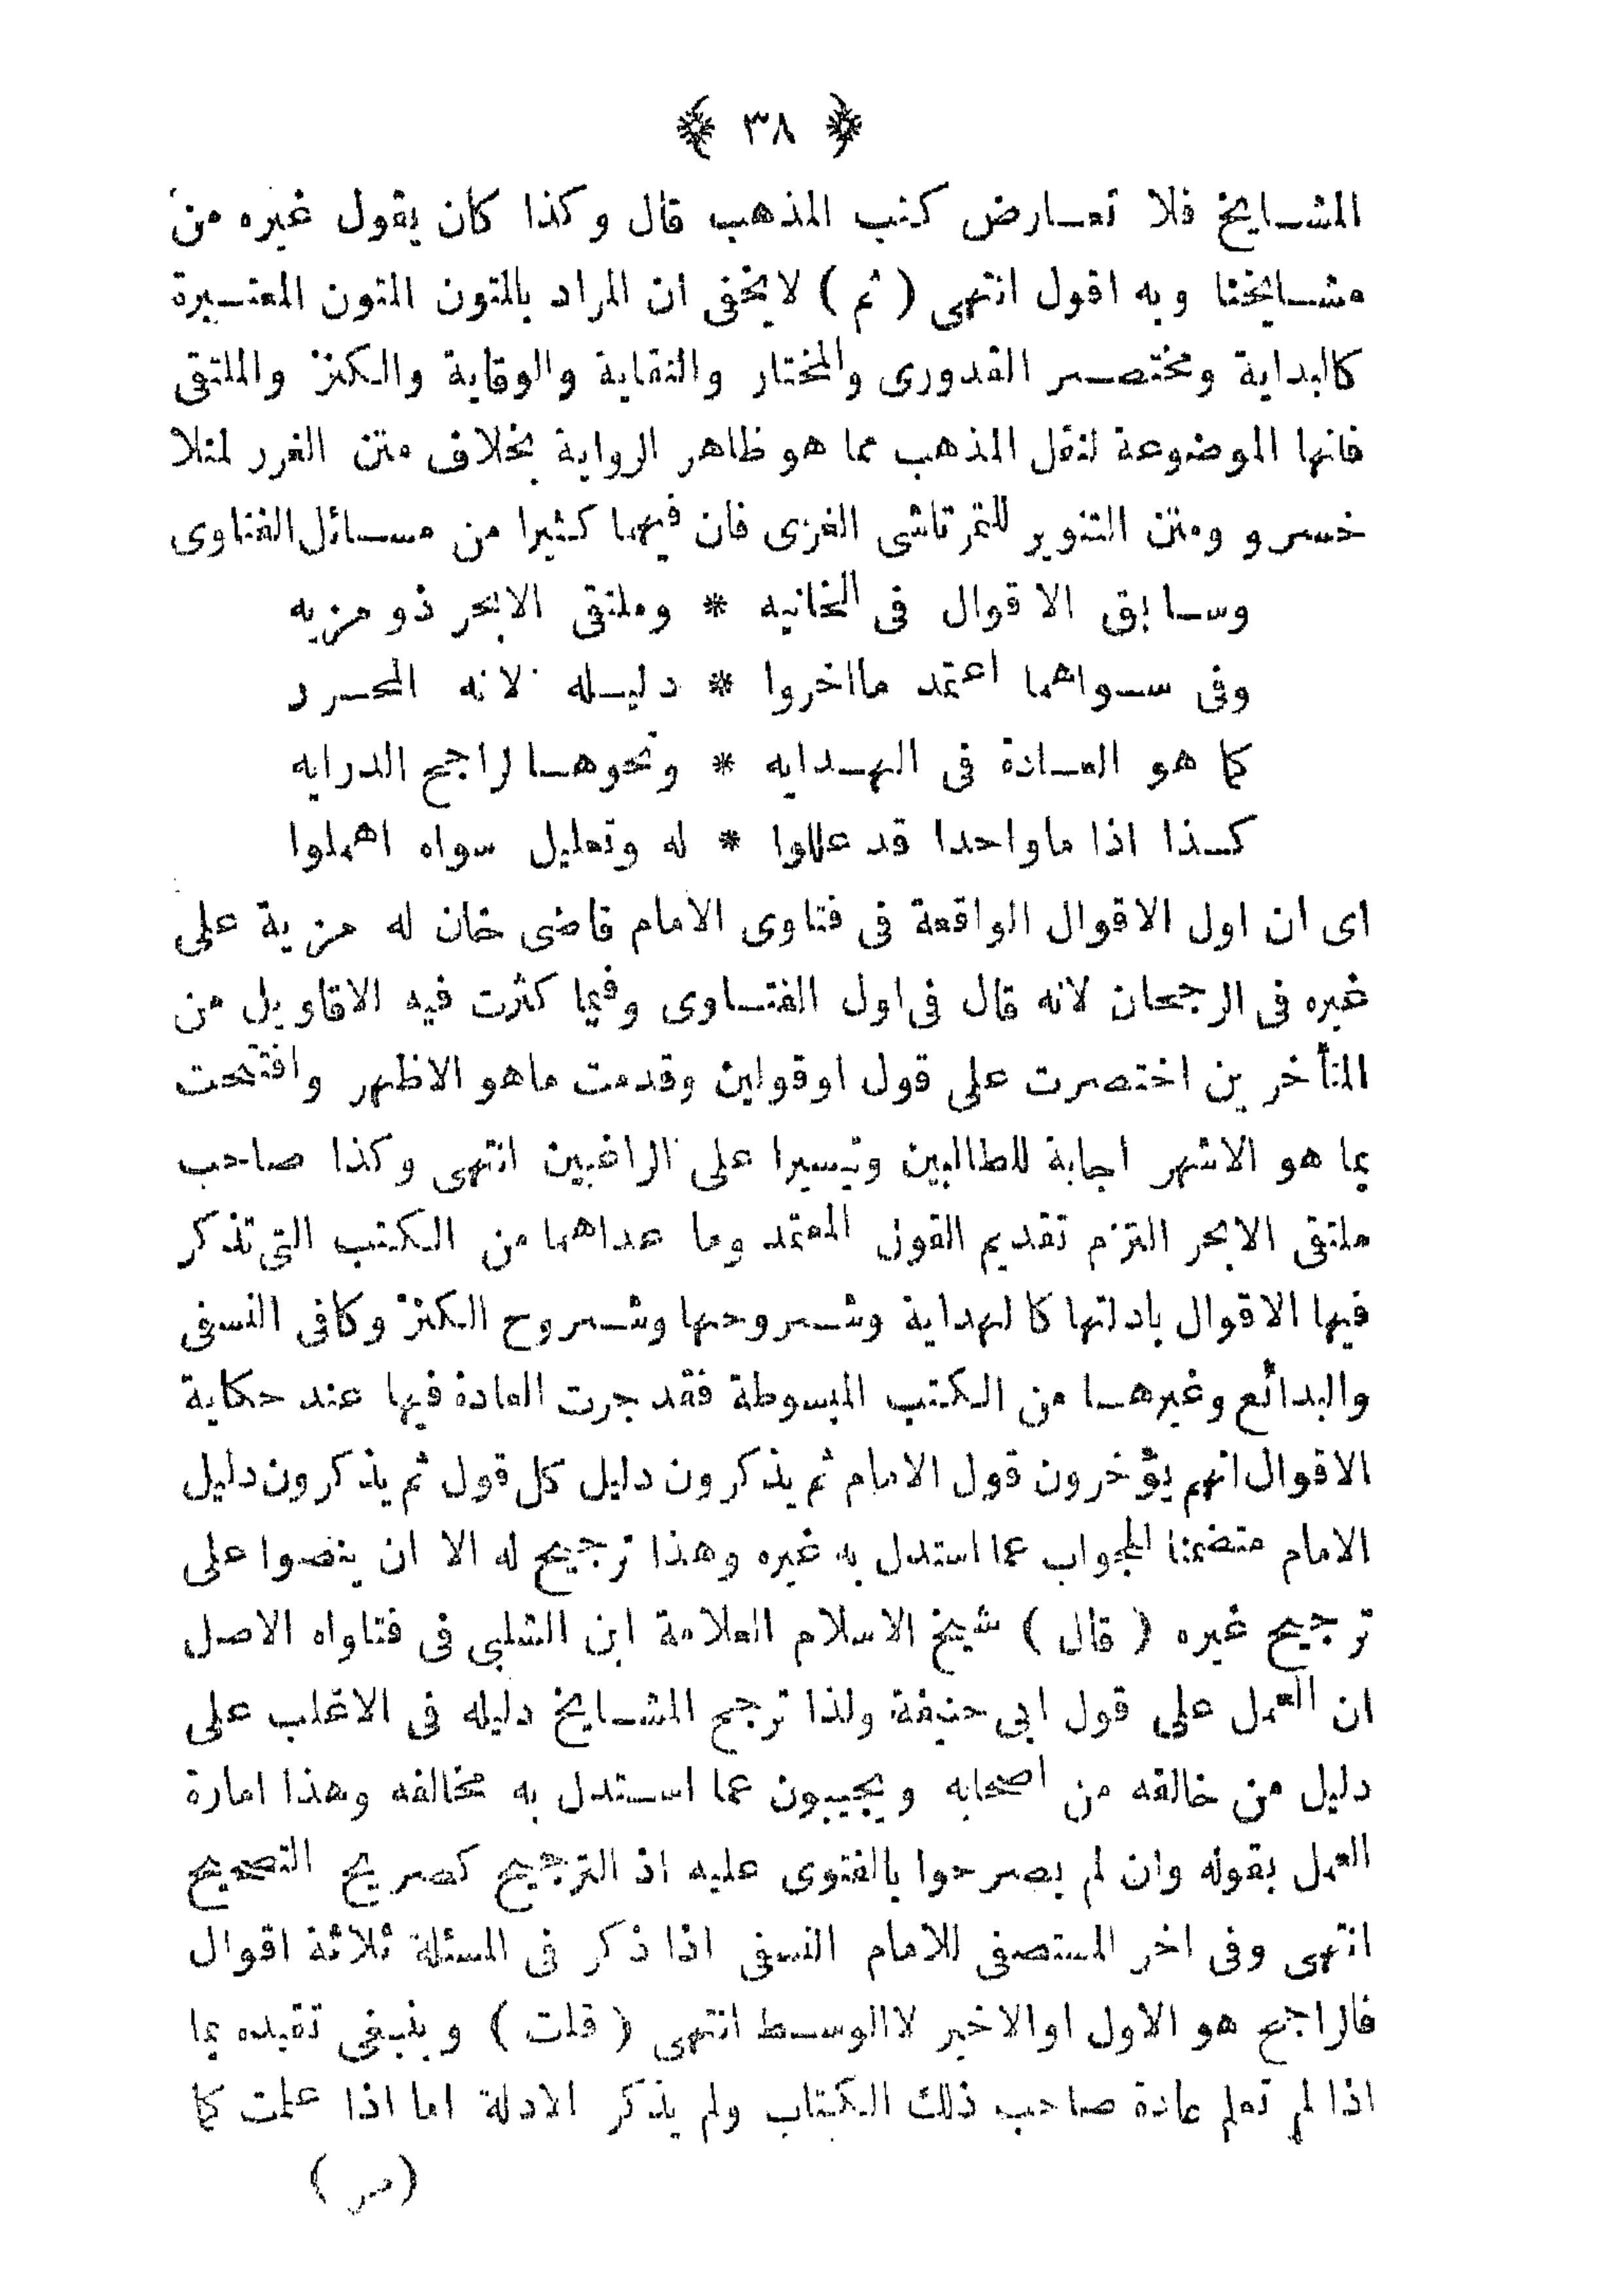 ﴿ ٣٨ ﴾
المشايخ فلا تعارض كتب المذهب قال وكذا كان يقول غيره من
مشايخنا وبه اقول انتهى ( ثم ) لايخفى ان المراد بالمتون المتون المعتبرة
كالبداية ومختصر القدورى والمختار والنقاية والوقاية والكنز والملتقى
فانها الموضوعة لنقل المذهب مما هو ظاهر الرواية بخلاف متن الغرر لمنلا
خسرو ومتن التنوير للتمرتاشى الغزى فان فيهما كثيرا من مسائل الفتاوى
وسابق الاقوال فى الخانيه * وملتقى الابحر ذو مزيه
وفى سواهما اعتمد مااخروا * دليله لانه المحرر
كما هو العادة فى الهدايه * ونحوها لراجح الدرايه
كذا اذا ماواحدا قد عللوا * له وتعليل سواه اهملوا
اى ان اول الاقوال الواقعة فى فتاوى الامام قاضى خان له مزية على
غيره فى الرجحان لانه قال فى اول الفتاوى وفيما كثرت فيه الاقاويل من
المتأخرين اختصرت على قول اوقولين وقدمت ماهو الاظهر وافتتحت
بما هو الاشهر اجابة للطالبين وتيسيرا على الراغبين انتهى وكذا صاحب
ملتقى الابحر التزم تقديم القول المعتمد وما عداهما من الكتب التى تذكر
فيها الاقوال بادلتها كالهداية وشروحها وشروح الكنز وكافى النسفى
والبدائع وغيرها من الكتب المبسوطة فقد جرت العادة فيها عند حكاية
الاقوال انهم يؤخرون قول الامام ثم يذكرون دليل كل قول ثم يذكرون دليل
الامام متضمنا للجواب عما استدل به غيره وهذا ترجيح له الا ان ينصوا على
ترجيح غيره ( قال ) شيخ الاسلام العلامة ابن الشلبى فى فتاواه الاصل
ان العمل على قول ابى حنيفة ولذا ترجح المشايخ دليله فى الاغلب على
دليل من خالفه من اصحابه ويجيبون عما استدل به مخالفه وهذا امارة
العمل بقوله وان لم يصرحوا بالفتوى عليه اذ الترجيح كصريح التصحيح
انتهى وفى اخر المستصفى للامام النسفى اذا ذكر فى المسئلة ثلاثة اقوال
فالراجح هو الاول اوالاخير لاالوسط انتهى ( قلت ) وينبغى تقييده بما
اذا لم تعلم عادة صاحب ذلك الكتاب ولم يذكر الادلة اما اذا علمت كما
(مر)